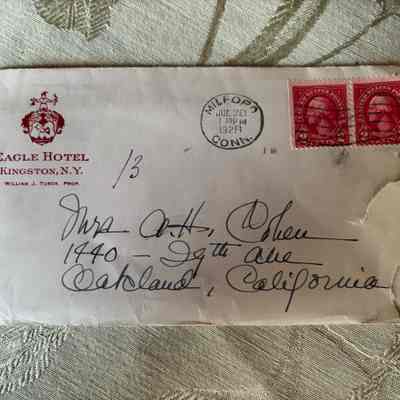 EAGLE HOTEL
KINGSTON, N.Y.
WILLIAM J. PROP.
MILFORD
1 PM
CONN.
13
Mrs A. H. Cohen
1440 – th ave
Oakland, California